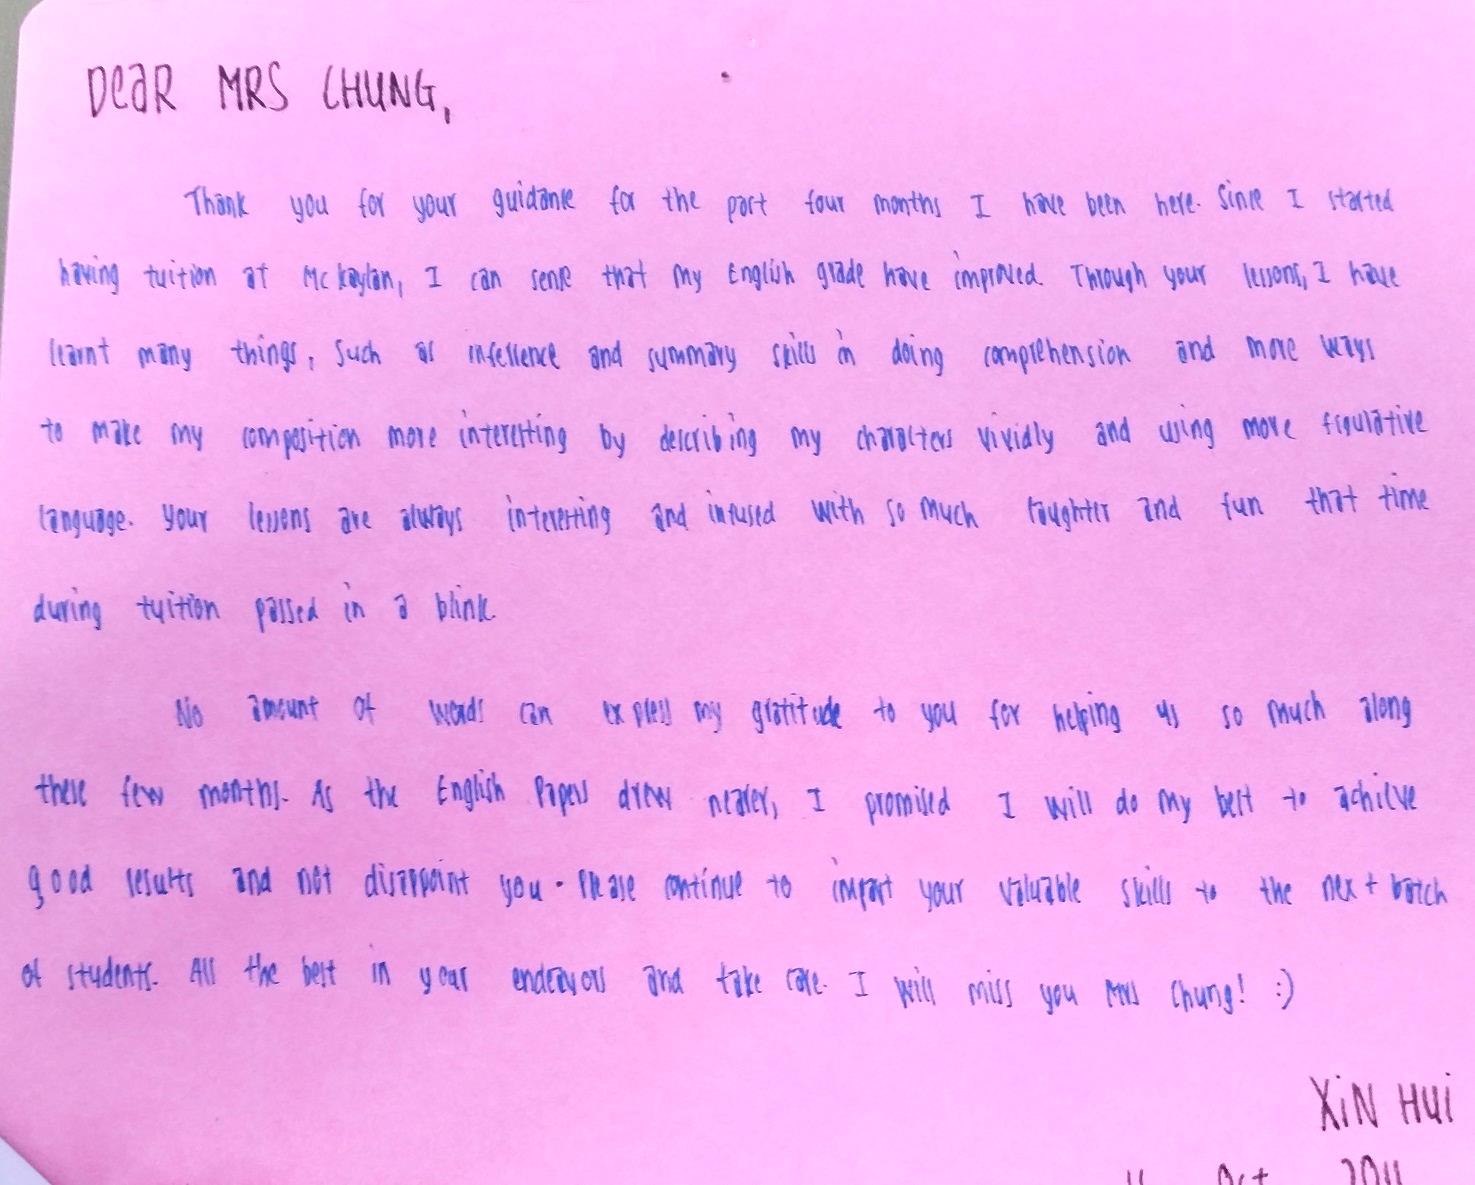 DEAR MRS CHUNG,
Thank you for your guidance for the past four months I have been here. Since I started
having tuition at Mc Kaylan, I can sense that my English grade have improved. Through your lessons, I have
learnt many things, such as inference and summary skills in doing comprehension and more ways
to make my composition more interesting by describing my characters vividly and using more figurative
language. Your lessons are always interesting and infused with so much laughter and fun that time
during tuition passed in a blink.
No amount of words can express my gratitude to you for helping us so much along
these few months. As the English Papers drew nearer, I promised I will do my best to achieve
good results and not disappoint you. Please continue to impart your valuable skills to the next batch
of students. All the best in your endeavors and take care. I will miss you Mrs Chung! :)
XIN HUI
Oct 2011